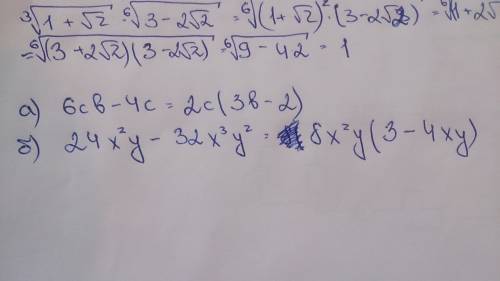 ³√(1 + √2) · ⁶√(3 − 2√2) = ⁶√((1 + √2)² · (3 − 2√2)) = ⁶√(1 + 2√
= ⁶√((3 + 2√2)(3 − 2√2)) = ⁶√(9 − 42) = 1
а) 6cb − 4c = 2c(3b − 2)
б) 24x²y − 32x³y² = 8x²y(3 − 4xy)